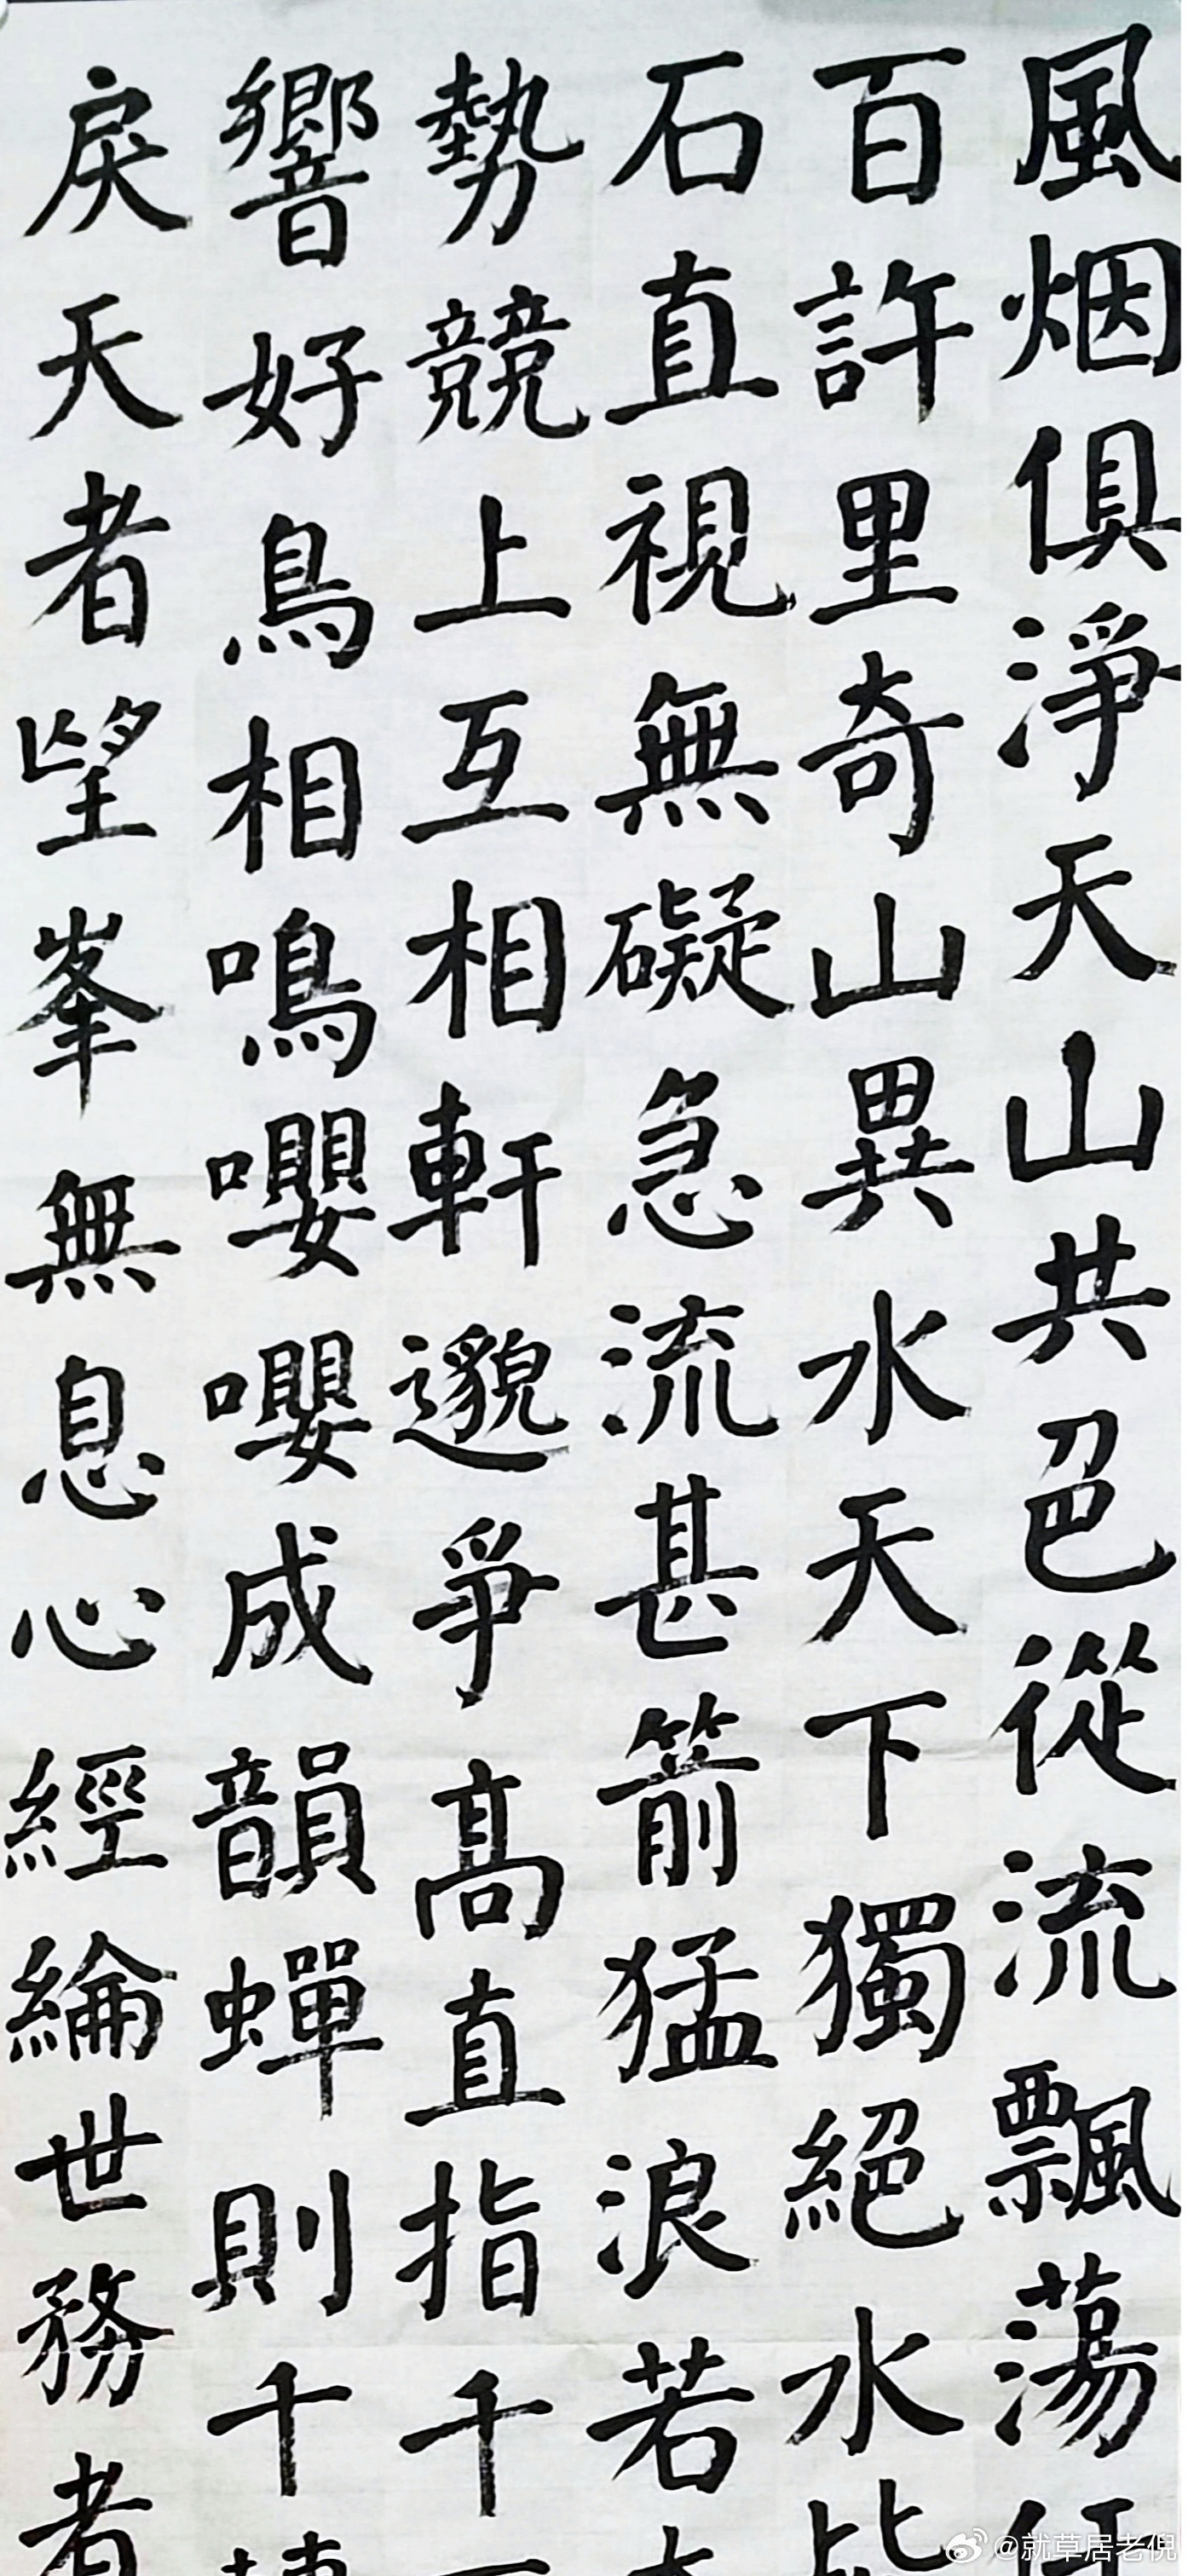 風烟俱淨天山共色從流飄蕩任
百許里奇山異水天下獨絕水皆
石直視無礙急流甚箭猛浪若
勢競上互相軒邈爭高直指千
響好鳥相鳴嚶嚶成韻蟬則千
戾天者望峯無息心經綸世務者
@就草居老倪